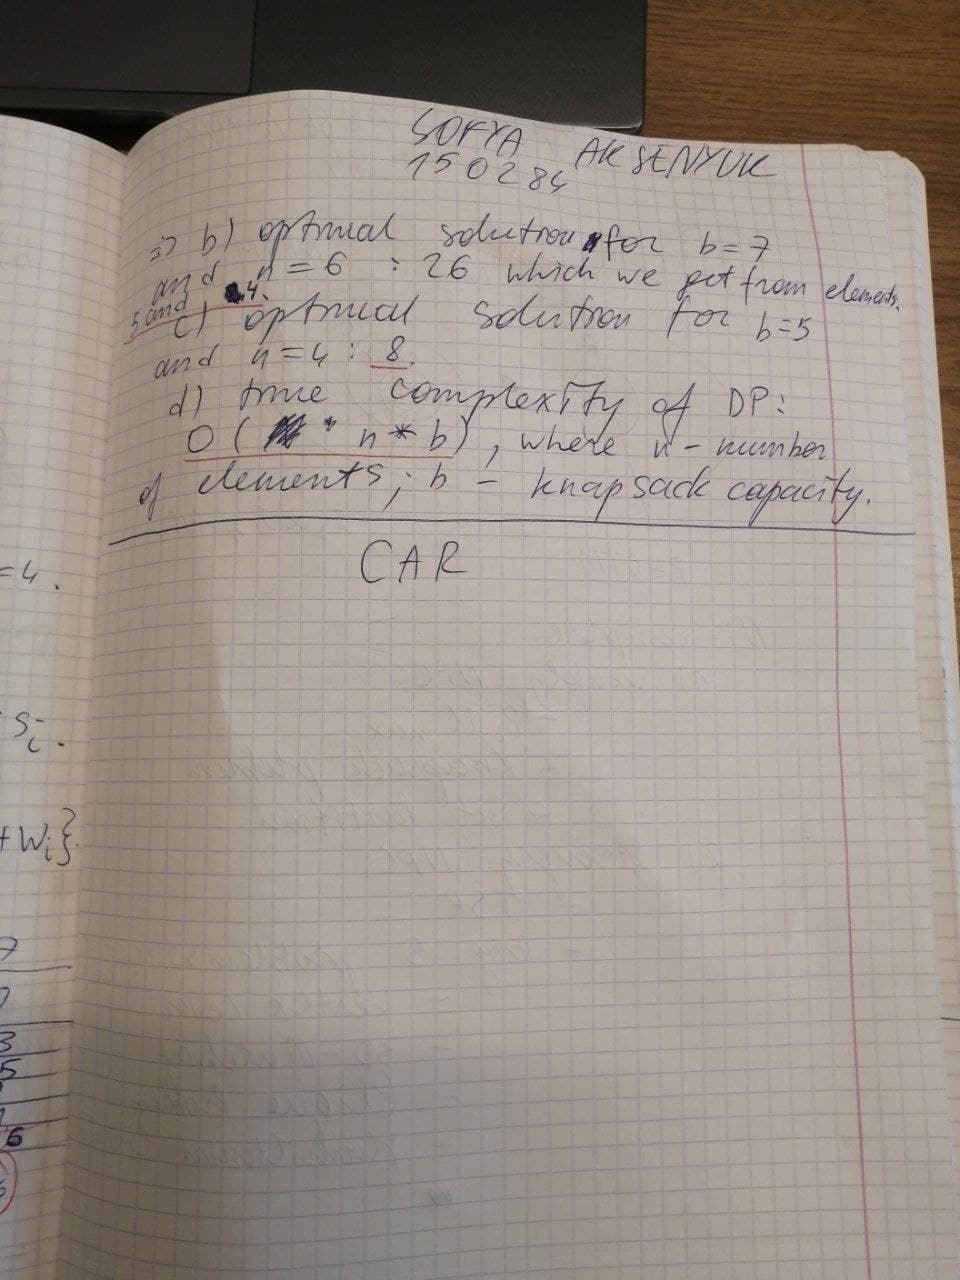 SOFYA AKSENYUK
150284
=> b) optimal solution for b=7
and n=6 : 26 which we get from elements
5 and 4.
c) optimal solution for b=5
and n=4 : 8.
d) time complexity of DP:
O( n * b), where n - number
of elements; b - knapsack capacity.
CAR
=4.
Si.
+Wi}.
7
3
5
6